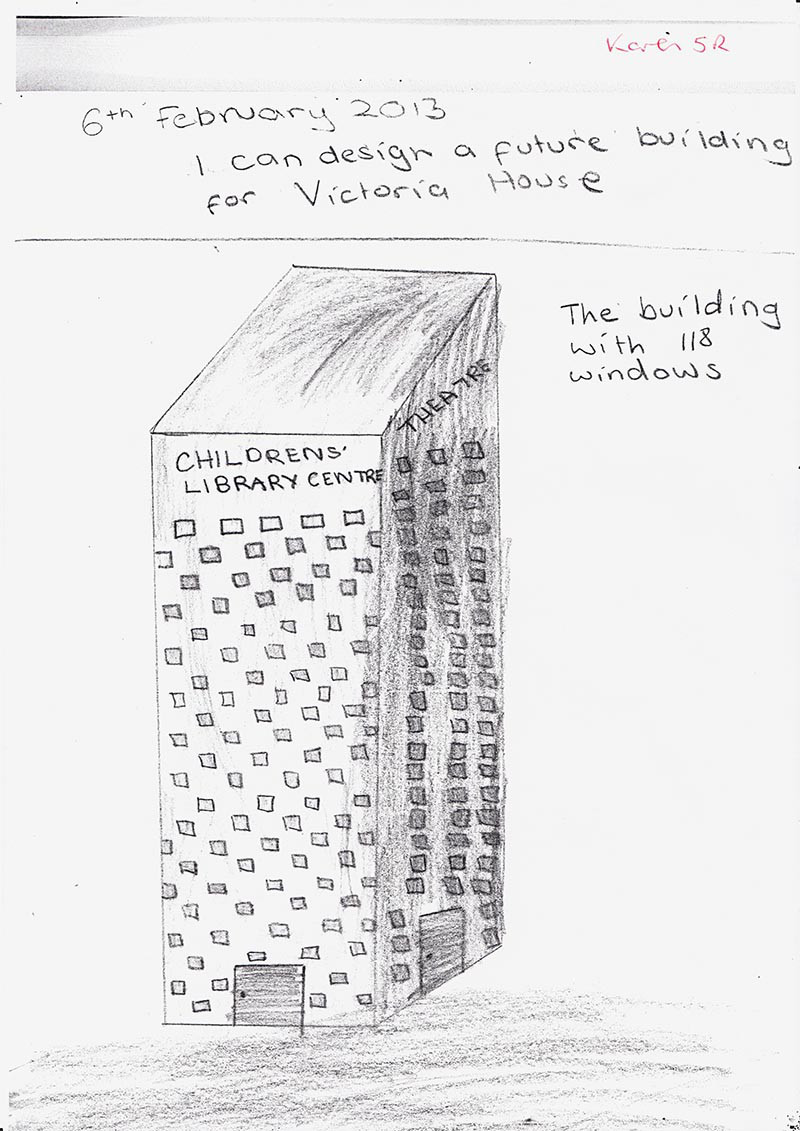 Karen 5R
6th February 2013
I can design a future building
for Victoria House
The building
with 118
windows
CHILDRENS'
LIBRARY CENTRE
THEATRE